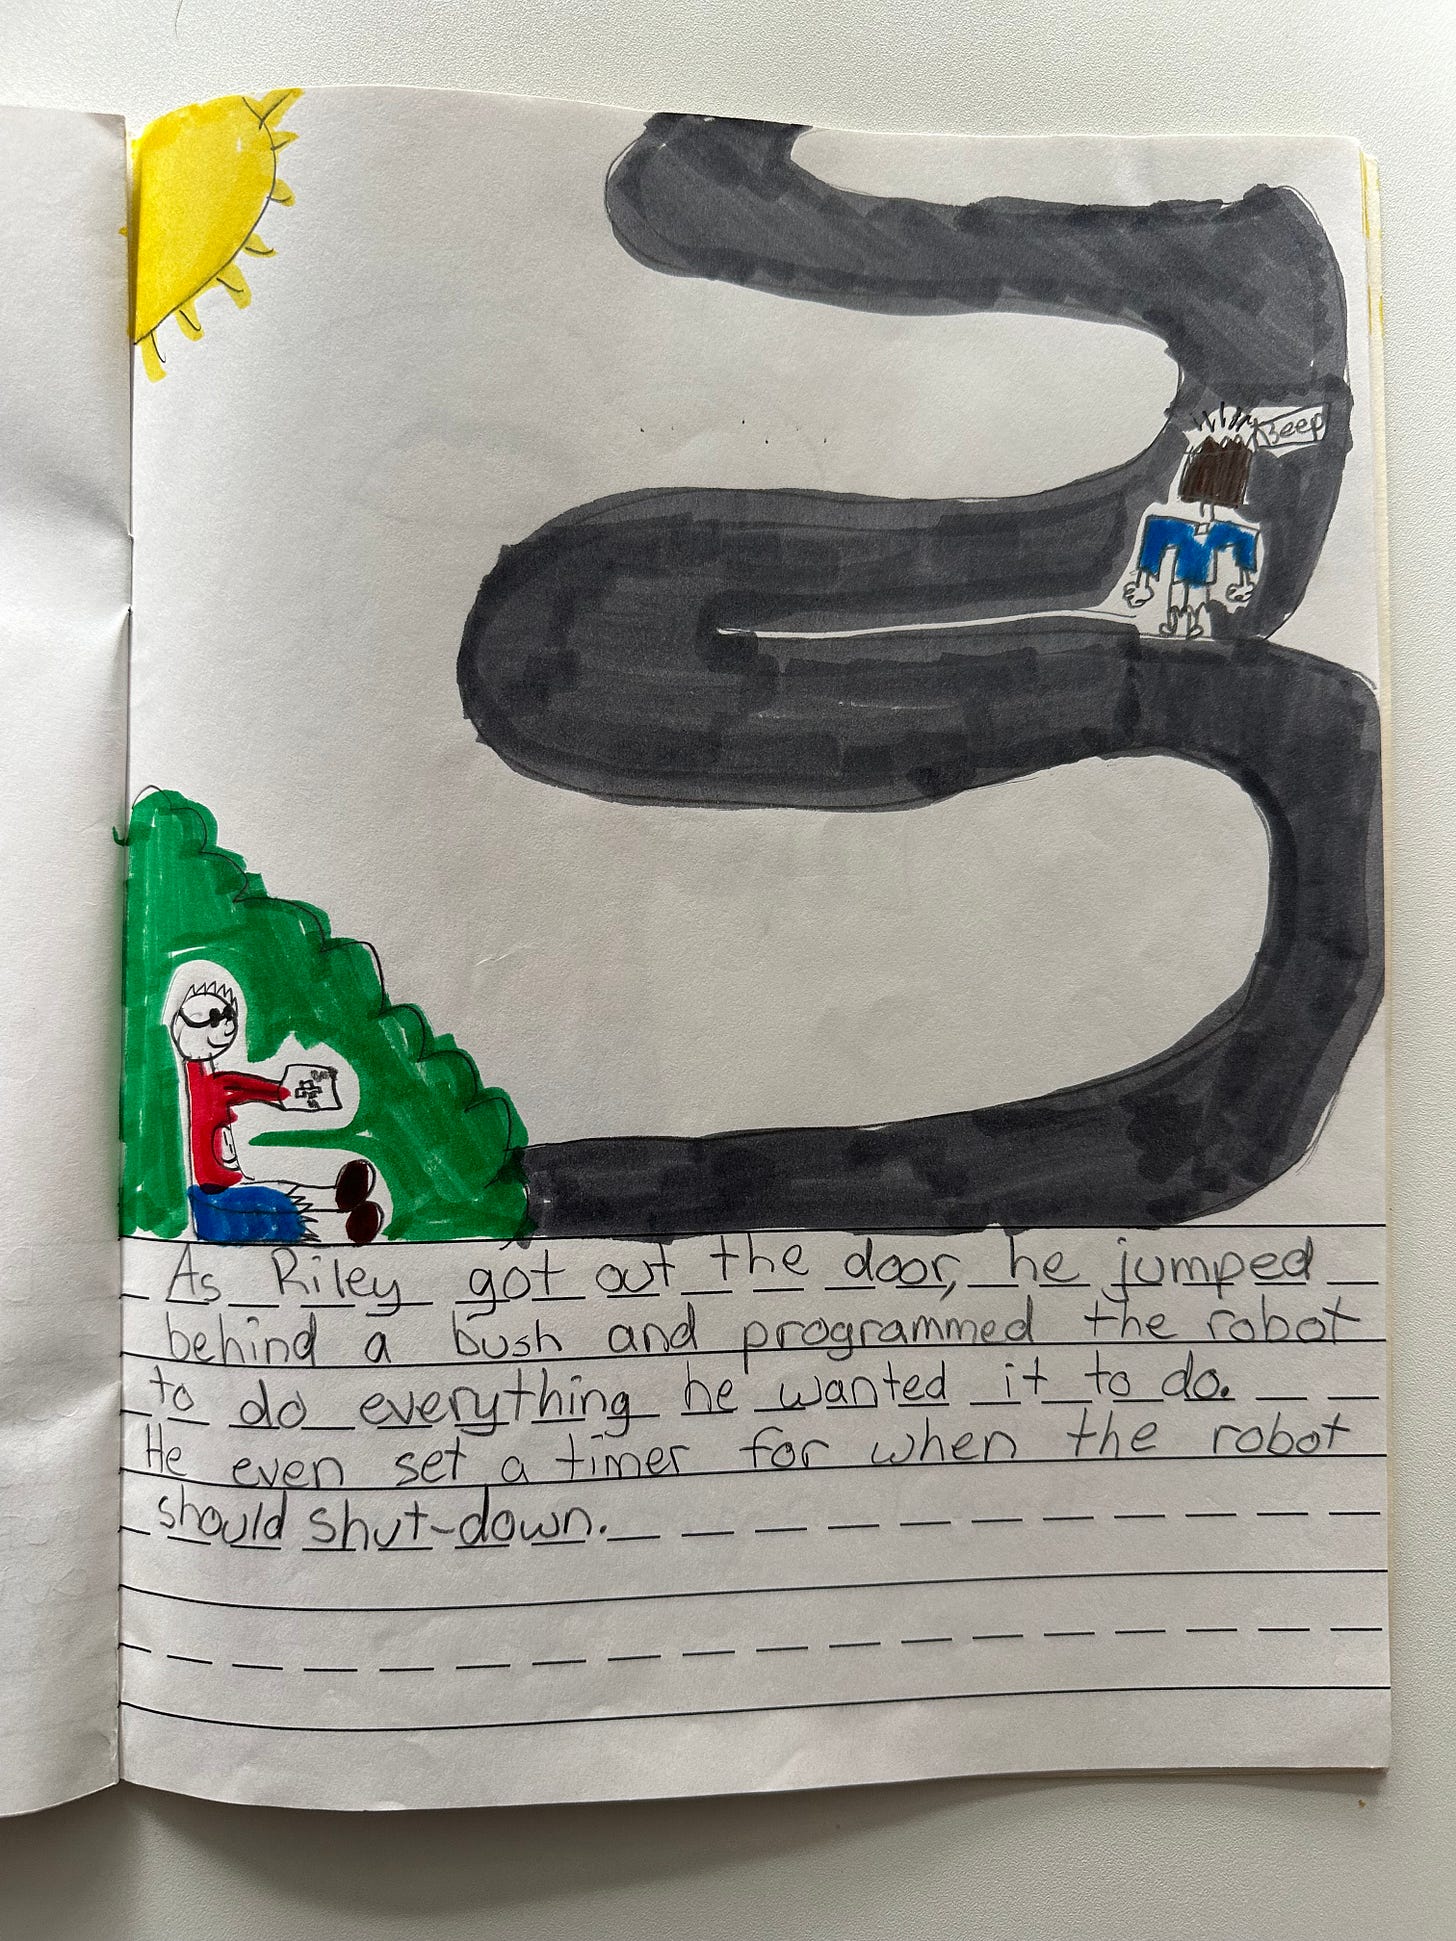 Beep
As Riley got out the door, he jumped
behind a bush and programmed the robot
to do everything he wanted it to do.
He even set a timer for when the robot
should shut-down.